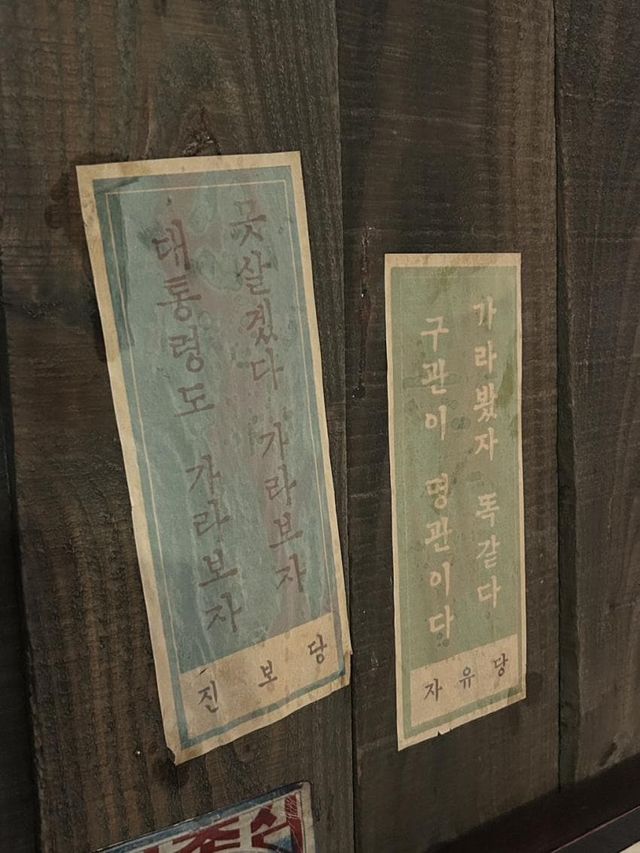 못살겠다 가라보자
대통령도 가라보자
진보당
가라봤자 똑같다
구관이 명관이다
자유당
조심